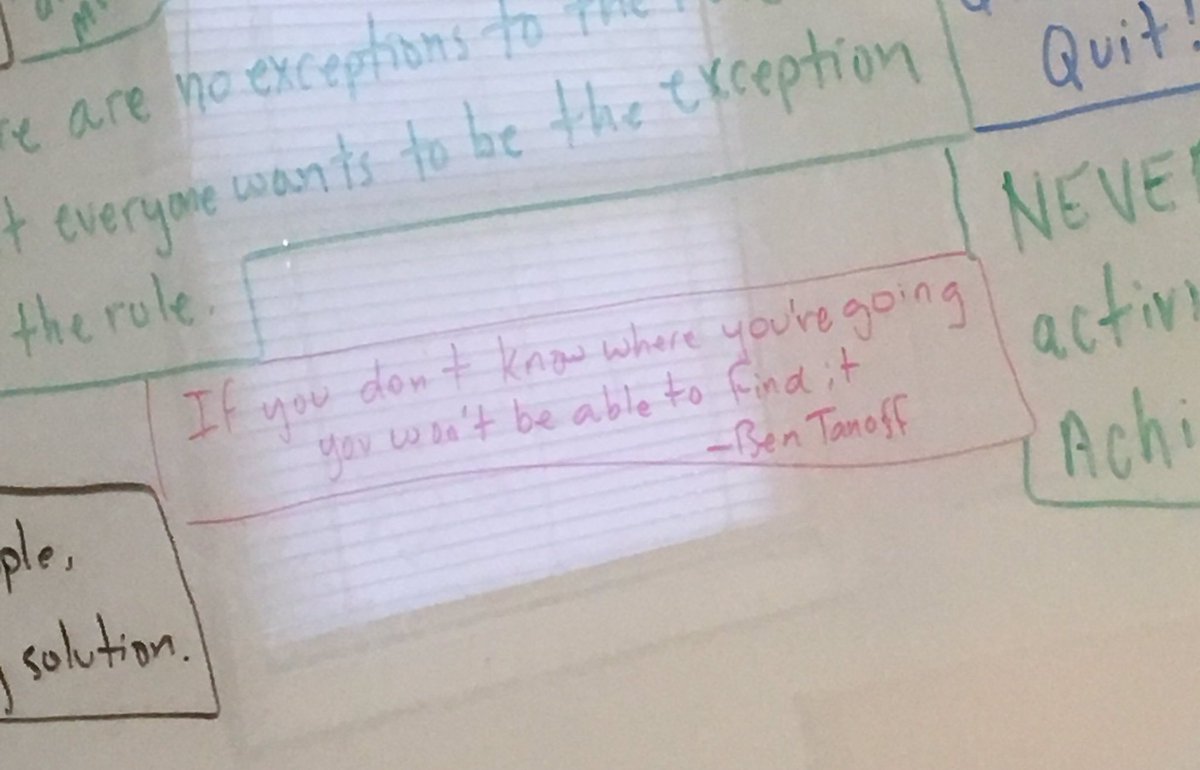 are no exceptions to the
everyone wants to be the exception
the rule.
Quit!
If you don't know where you're going
you won't be able to find it
-Ben Tanoff
solution.